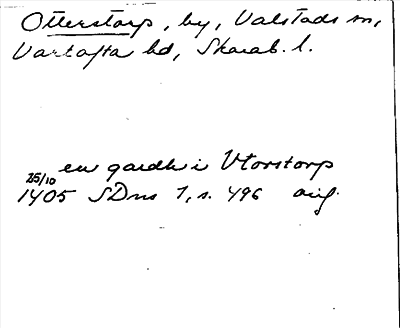 Otterstorp, by, Valstads sn,
Vartofta hd, Skarab. l.
en gardh i Vtorstorp
25/10
1405 SDns 1, s. 496 orig.